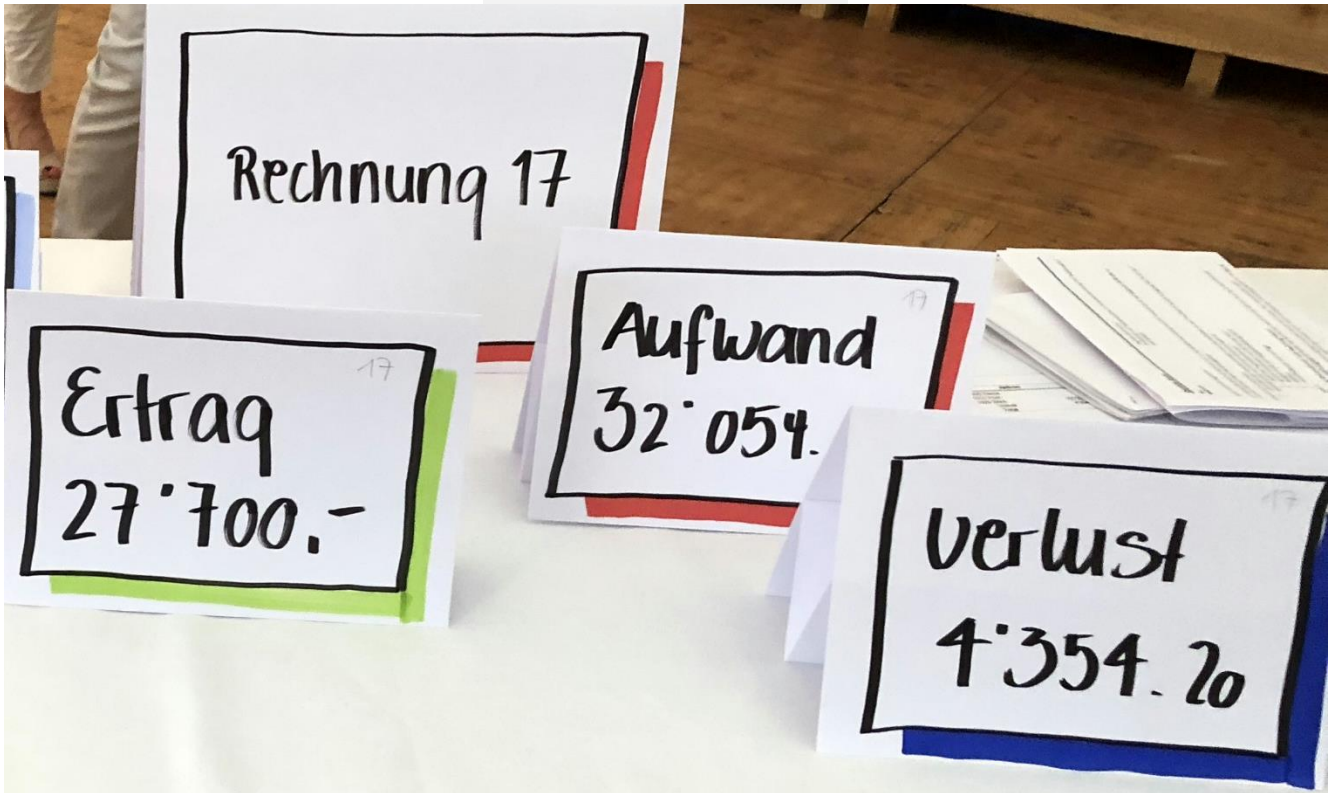 Rechnung 17
17
Ertrag
27'700.-
17
Aufwand
32'054.
17
Verlust
4'354.20